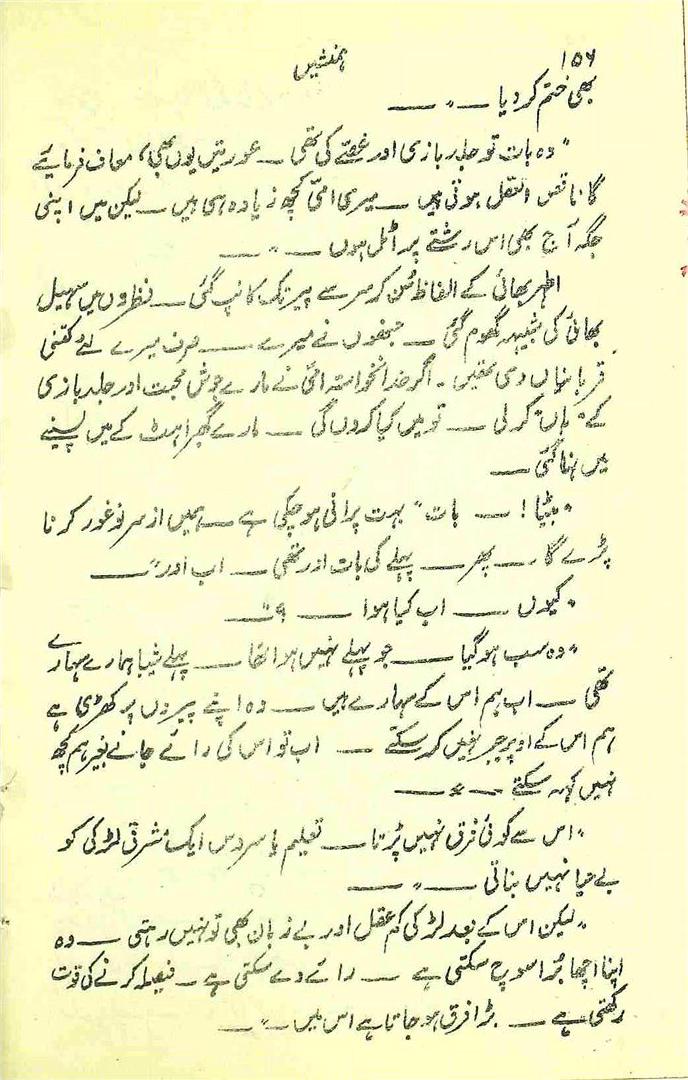 ۱۵۶
ہمنشیں
بھی ختم کر دیا ــ ״ ــ
"وہ بات تو جلد بازی اور غصّے کی تھی ــ عورتیں یوں بھی، معاف فرمایئے
گا ناقص العقل ہوتی ہیں ــ میری امّی کچھ زیادہ ہی ہیں ــ لیکن میں اپنی
جگہ آج بھی اس رشتے پر اٹل ہوں ــ ״ ــ
اظہر بھائی کے الفاظ سُن کر سر سے پیر تک کانپ گئی ــ نظروں میں سہیل
بھائی کی شبیہہ گھوم گئی ــ جنھوں نے میرے ــ صرف میرے لئے کتنی
قربانیاں دی تھیں ۔ اگر خدانخواستہ امّی نے مارے جوش محبت اور جلد بازی
کے "ہاں" کر لی ــ تو میں کیا کروں گی ــ مارے گھبراہٹ کے میں پسینے
میں نہا گئی ــ
"بیٹا! ــ بات" بہت پرانی ہو چکی ہے ــ ہمیں از سر نو غور کرنا
پڑے گا ــ پھر ــ پہلے کی بات اور تھی ــ اب اور" ــ
"کیوں ــ اب کیا ہوا ــ ؟" ــ
"وہ سب ہو گیا ــ جو پہلے نہیں ہوا تھا ــ پہلے شیبا ہمارے سہارے
تھی ــ اب ہم اس کے سہارے ہیں ــ وہ اپنے پیروں پر کھڑی ہے
ہم اس کے اوپر جبر نہیں کر سکتے ــ اب تو اس کی رائے جانے بغیر ہم کچھ
نہیں کہہ سکتے ــ ״ ــ
"اس سے کوئی فرق نہیں پڑتا ــ تعلیم یا سروس ایک مشرقی لڑکی کو
بے حیا نہیں بناتی ــ ״ ــ
"لیکن اس کے بعد لڑکی کم عقل اور بے زبان بھی تو نہیں رہتی ــ وہ
اپنا اچھا بُرا سوچ سکتی ہے ــ رائے دے سکتی ہے ــ فیصلہ کرنے کی قوت
رکھتی ہے ــ بڑا فرق ہو جاتا ہے اس میں ــ ״ ــ